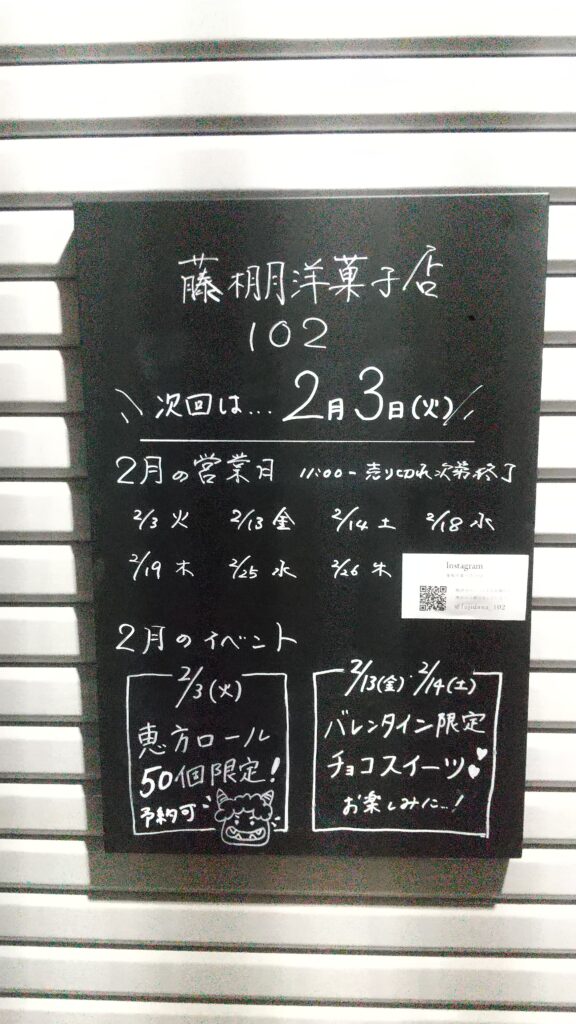 藤棚洋菓子店
102
次回は... 2月3日(火)
2月の営業日 11:00-売り切れ次第終了
2/3 火 2/13 金 2/14 土 2/18 水
2/19 木 2/25 水 2/26 木
Instagram
@fujidana_102
2月のイベント
2/3(火)
恵方ロール
50個限定!
予約可
2/13(金)・2/14(土)
バレンタイン限定
チョコスイーツ
お楽しみに...!